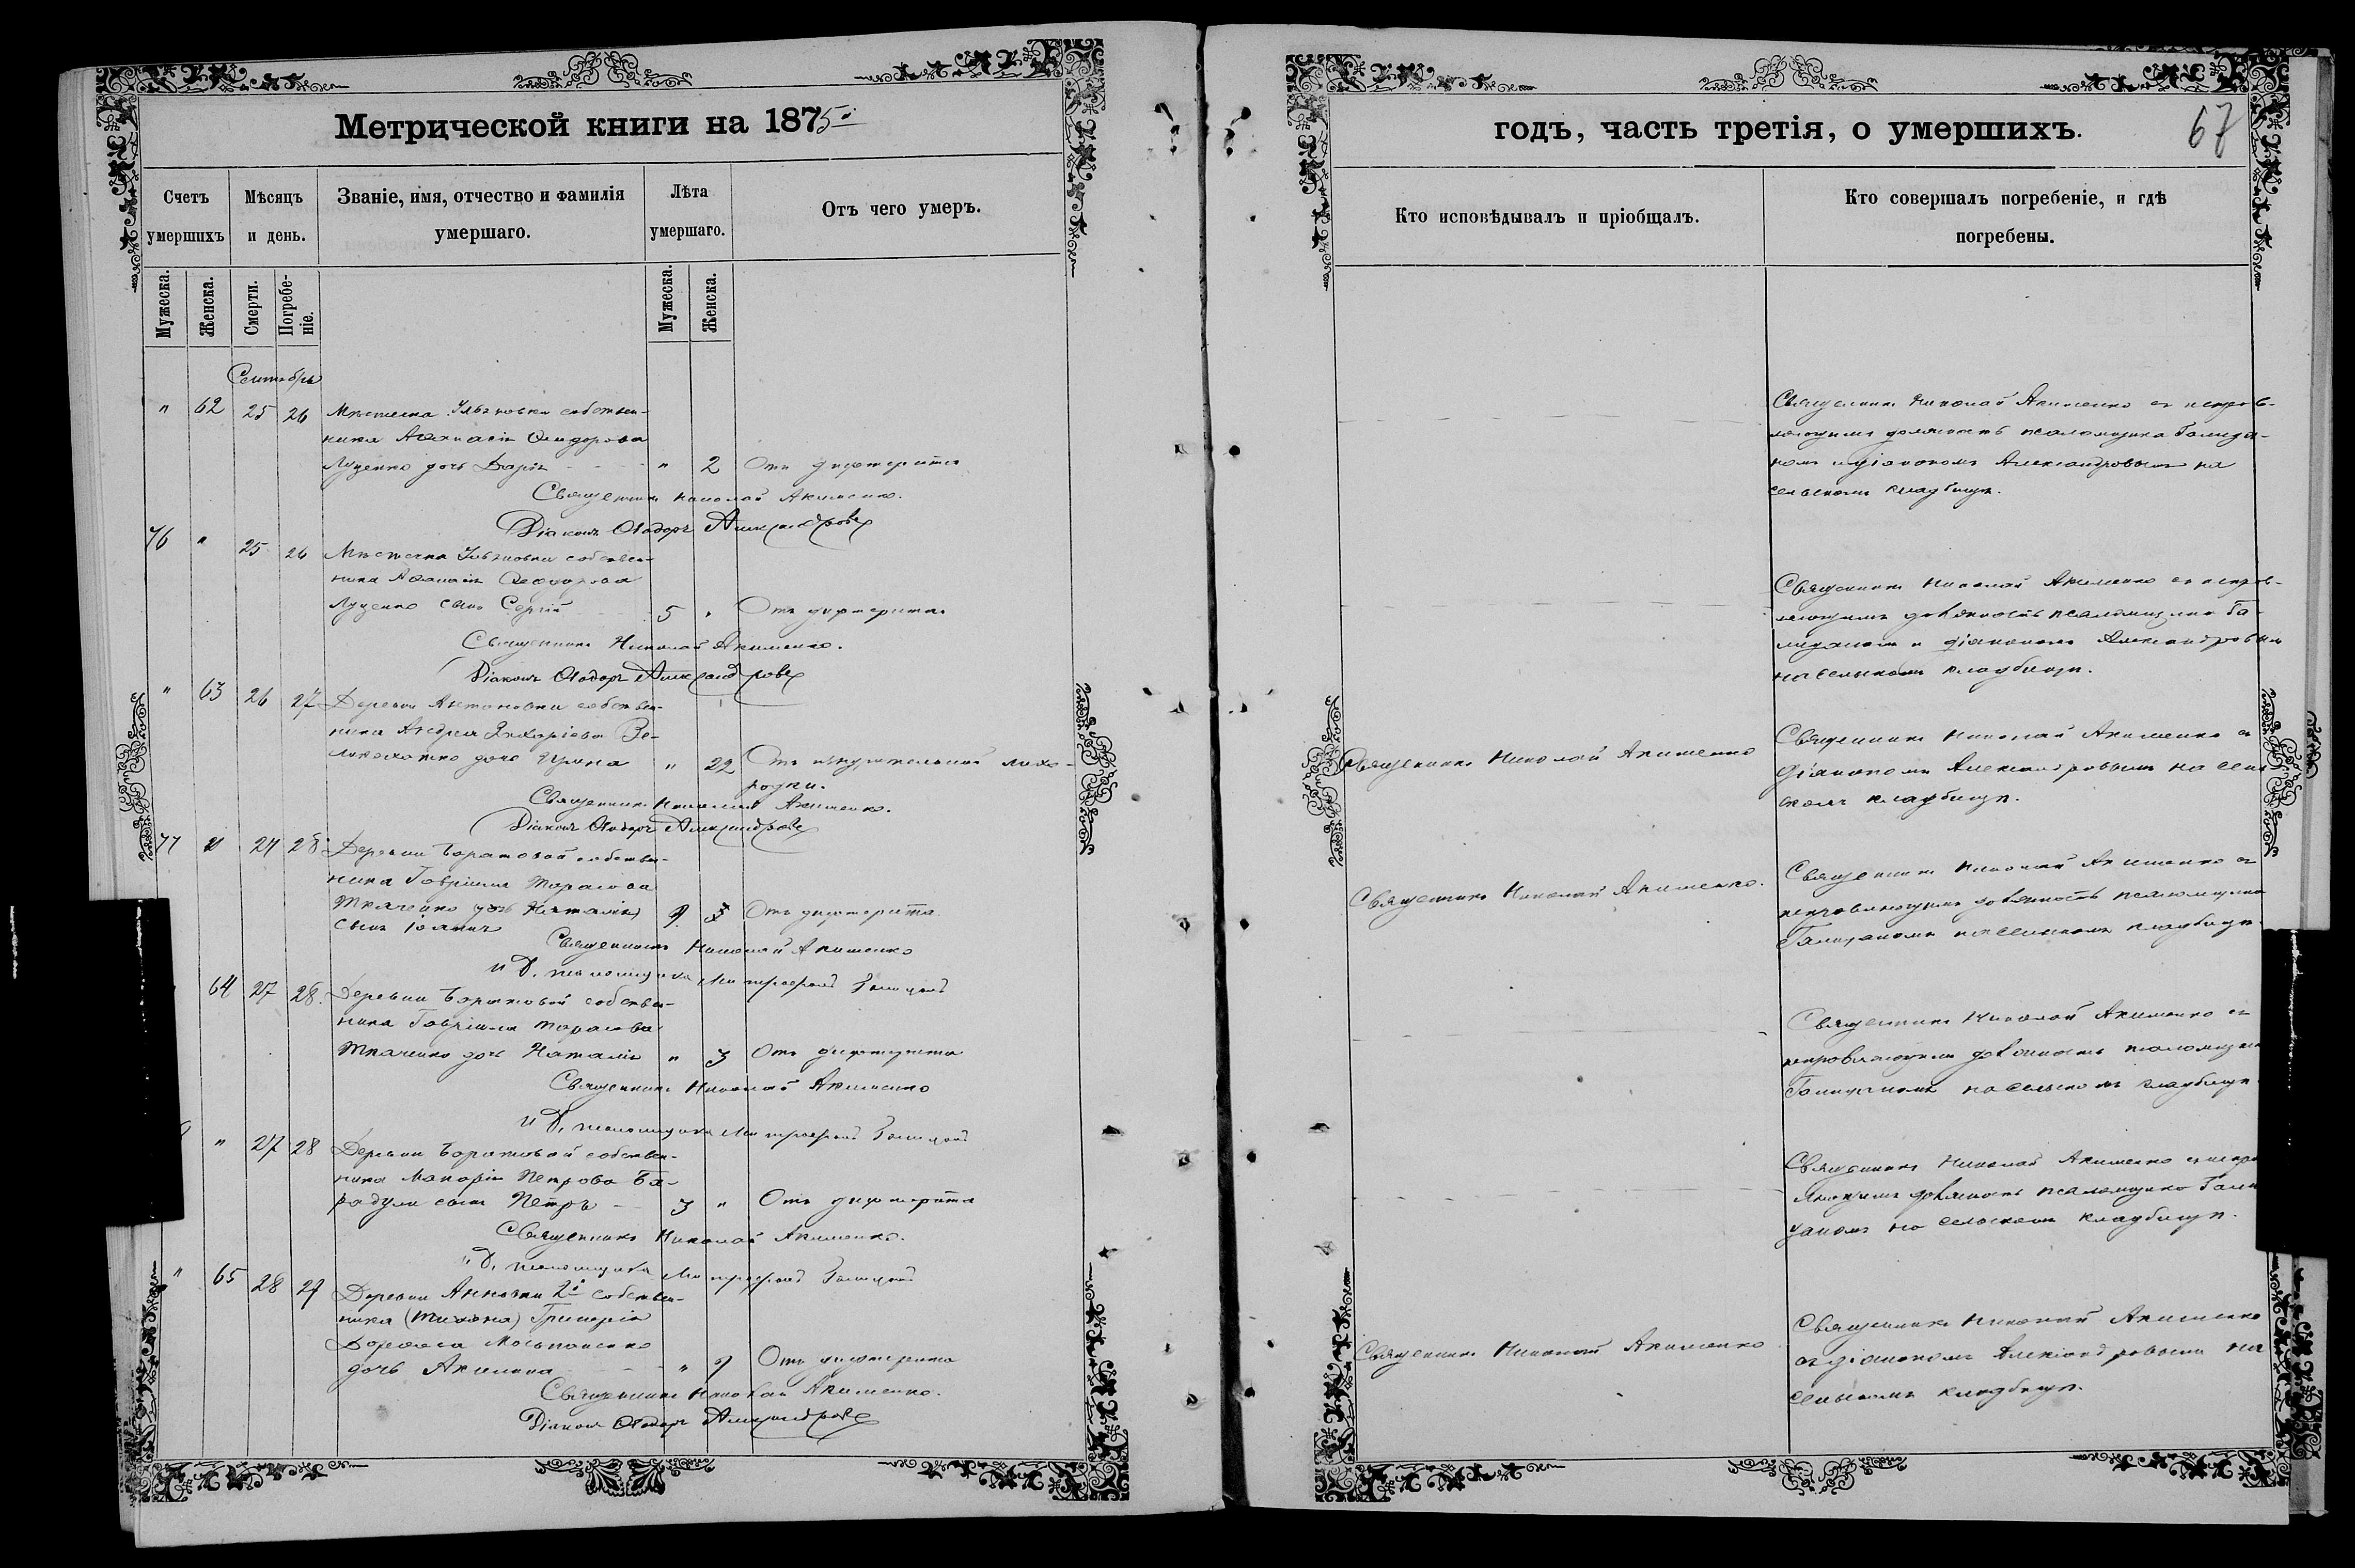 Метрической книги на 1875
годъ, часть третія, о умершихъ.
67
Счетъ умершихъ
Мѣсяцъ и день.
Званіе, имя, отчество и фамилія умершаго.
Лѣта умершаго.
Отъ чего умеръ.
Кто исповѣдывалъ и пріобщалъ.
Кто совершалъ погребеніе, и гдѣ погребены.
Мужеска.
Женска.
Смерти.
Погребе-
ніе.
Мужеска.
Женска.
Сентябрь
" 62 25 26 Мѣстечка Ульяновки собствен-
ника Аѳанасія
Луценко дочь Дарія " 2 Отъ дифтерита
Священникъ Николай Акименко.
Діаконъ Ѳеодоръ Александровъ
Священникъ Николай Акименко съ исправ-
ляющимъ должность псаломщика Голиц-
комъ и діакономъ Александровымъ на
сельскомъ кладбищѣ.
76 " 25 26 Мѣстечка Ульяновки собствен-
ника Аѳанасія
Луценко сынъ Сергій 5 " Отъ дифтерита
Священникъ Николай Акименко.
Діаконъ Ѳеодоръ Александровъ
Священникъ Николай Акименко съ исправ-
ляющимъ должность псаломщика
и діакономъ Александровымъ
на сельскомъ кладбищѣ.
" 63 26 27 Деревни Антоновки собствен-
ника Андрея Захаріева Ве-
дочь Ирина " 22 Отъ изнурительной лихо-
радки.
Священникъ Николай Акименко.
Діаконъ Ѳеодоръ Александровъ
Священникъ Николай Акименко
Священникъ Николай Акименко съ
діакономъ Александровымъ на сель-
скомъ кладбищѣ.
77 " 27 28 Деревни собствен-
ника Гавріила Тарасова
Ткаченко дочь Наталія 9 3 Отъ дифтерита
сынъ Іоаннъ
Священникъ Николай Акименко
И Д. псаломщика Митрофанъ
Священникъ Николай Акименко.
Священникъ Николай Акименко съ
исправляющимъ должность псаломщика
на сельскомъ кладбищѣ
64 27 28. Деревни собствен-
ника Гавріила Тарасова
Ткаченко дочь Наталія " 3 Отъ дифтерита
Священникъ Николай Акименко
И Д. псаломщика Митрофанъ
Священникъ Николай Акименко съ
исправляющимъ должность псаломщика
на сельскомъ кладбищѣ.
" 27 28 Деревни собствен-
ника Макарія Петрова Ба-
сынъ Петръ 3 " Отъ дифтерита
Священникъ Николай Акименко.
И Д. псаломщика Митрофанъ
Священникъ Николай Акименко съ испра
ляющимъ должность псаломщика
на сельскомъ кладбищѣ.
" 65 28 29 Деревни Анновки 2й собствен-
ника (Тихона) Григорія
дочь Акилина " 9 Отъ дифтерита
Священникъ Николай Акименко.
Діаконъ Ѳеодоръ Александровъ
Священникъ Николай Акименко
Священникъ Николай Акименко
съ діакономъ Александровымъ на
сельскомъ кладбищѣ.